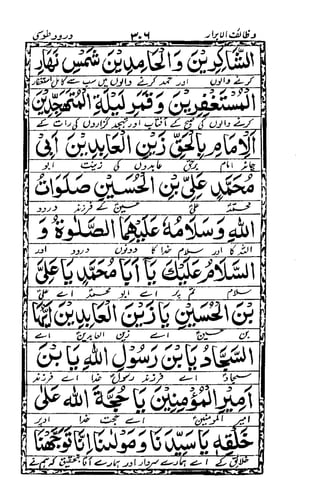 وظائف الابرار ۳۰۶ درود طوسی
الشَّاكِرِينَ وَالْحَامِدِينَ شَمْسِ نَهَارِ
کرنے والوں اور حمد کرنے والوں میں سب سے کامل استغفار
الْمُسْتَغْفِرِينَ وَقَمَرِ لَيْلَةِ الْمُتَهَجِّدِينَ
کرنے والوں کی صبح کے آفتاب اور تہجد گزاروں کی رات کے
الْاِمَامِ بِالْحَقِّ زَيْنِ الْعَابِدِينَ اَبِي
چاند امام برحق عابدوں کی زینت ابو
مُحَمَّدٍ عَلِيِّ بْنِ الْحُسَيْنِ صَلَوَاتُ
محمد علی حسین کے فرزند درود
اللهِ وَسَلَامُهُ عَلَيْهِمَا الصَّلٰوةُ وَ
اللہ کا اور سلام خدا کا دونوں درود اور
السَّلَامُ عَلَيْكَ يَا اَبَا مُحَمَّدٍ يَا عَلِيَّ
سلام تم پر اے ابو محمد اے علی
بْنَ الْحُسَيْنِ يَا زَيْنَ الْعَابِدِينَ اَيُّهَا
بن حسین اے زین العابدین اے
السَّجَّادُ يَا بْنَ رَسُولِ اللهِ يَا بْنَ
سجاد اے فرزند رسول خدا اے فرزند
اَمِيرِ الْمُؤْمِنِينَ يَا حُجَّةَ اللهِ عَلٰى
امیر المومنین اے حجت خدا اوپر
خَلْقِهِ يَا سَيِّدَنَا وَمَوْلٰنَا اِنَّا تَوَجَّهْنَا
خلائق کے اے ہمارے سردار اور ہمارے آقا تحقیق کہ ہم نے